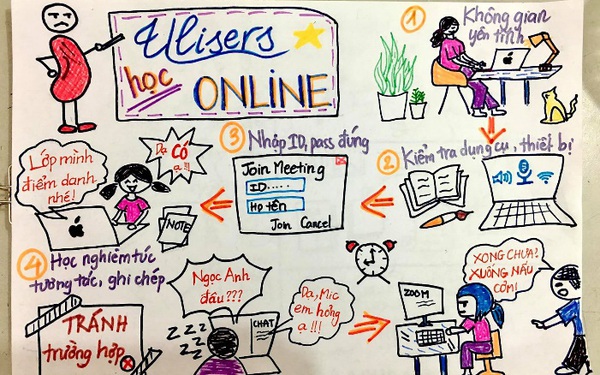 Ulisers
học ONLINE
① Không gian
yên tĩnh
② Kiểm tra dụng cụ, thiết bị
③ Nhập ID, pass đúng
Join Meeting
ID.....
Họ tên
Join Cancel
Lớp mình
điểm danh
nhé!
Dạ CÓ
ạ!!!
NOTE
④ Học nghiêm túc
tương tác, ghi chép
TRÁNH
trường hợp
Ngọc Anh
đâu???
Z Z Z Z Z
CHAT
Dạ, Mic
em hỏng
ạ!!!
ZOOM
XONG CHƯA?
XUỐNG NẤU
CƠM!